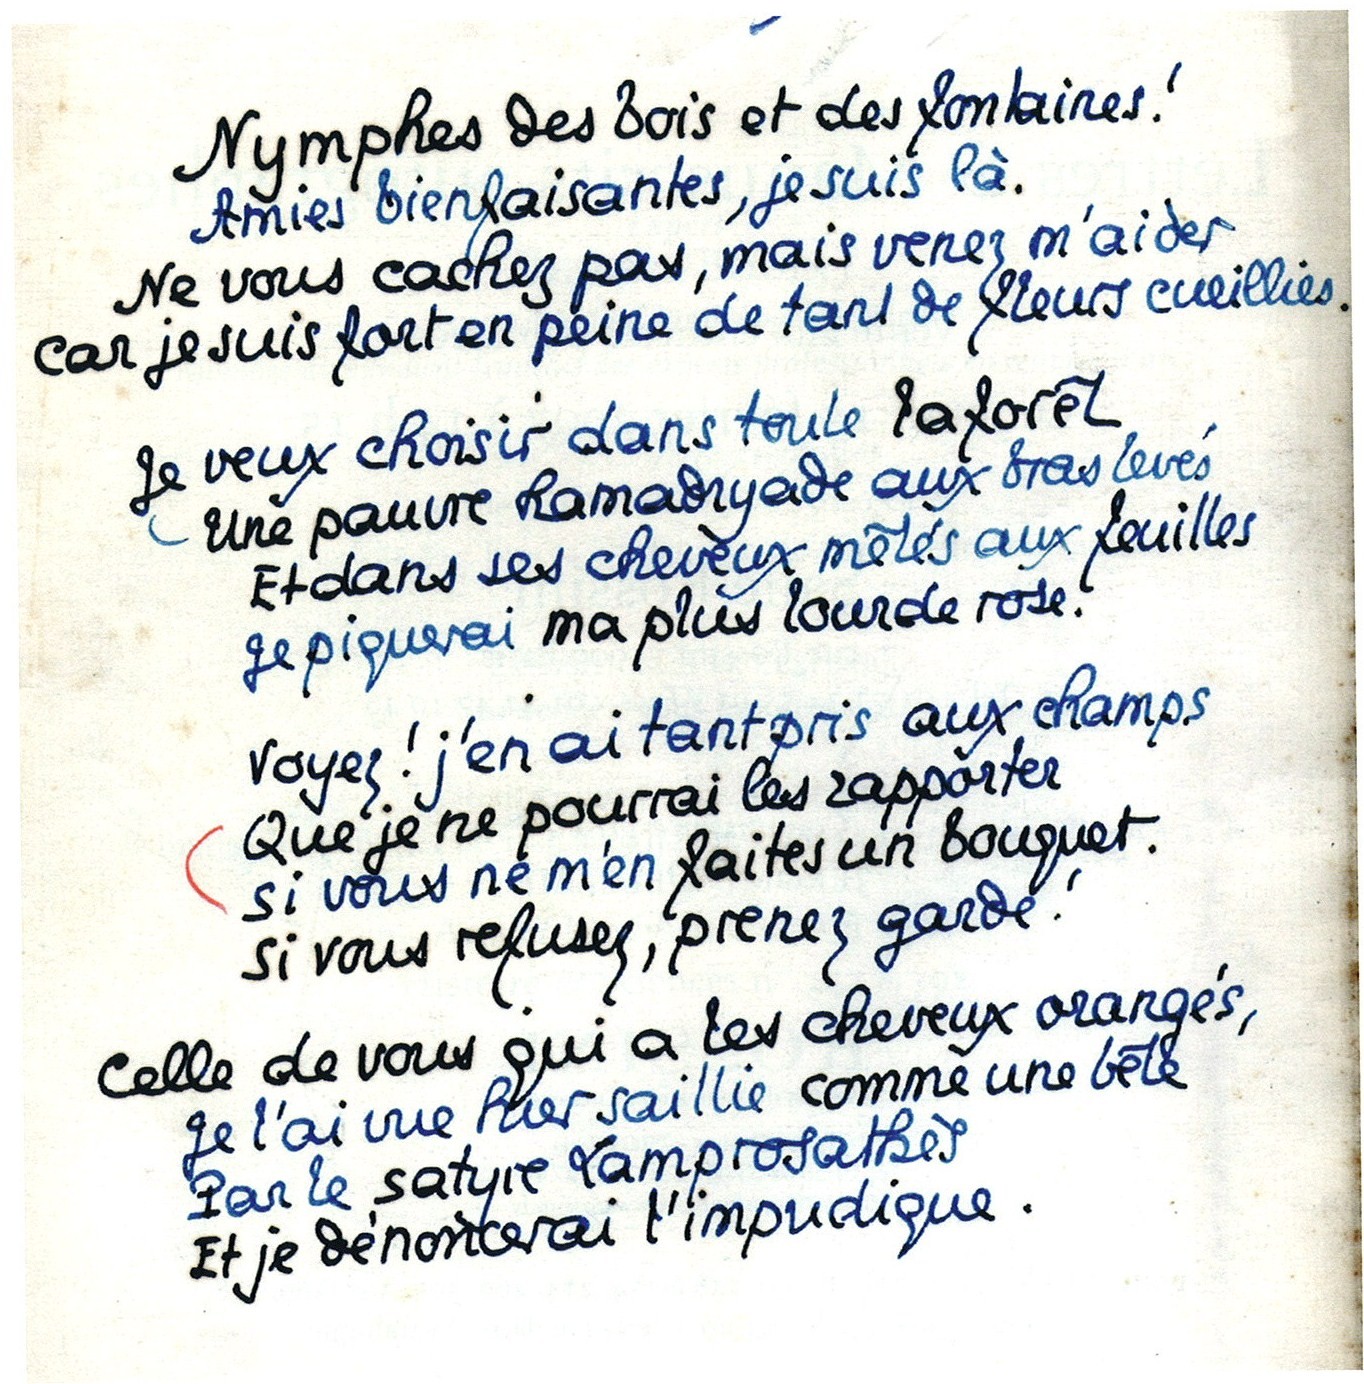 Nymphes des bois et des fontaines!
Amies bienfaisantes, je suis là.
Ne vous cachez pas, mais venez m'aider
car je suis fort en peine de tant de fleurs cueillies.
Je veux choisir dans toute la forêt
Une pauvre hamadryade aux bras levés
Et dans ses cheveux mêlés aux feuilles
Je piquerai ma plus lourde rose.
Voyez! j'en ai tant pris aux champs
Que je ne pourrai les rapporter
si vous ne m'en faites un bouquet.
Si vous refusez, prenez garde!
Celle de vous qui a les cheveux orangés,
Je l'ai vue hier saillie comme une bête
Par le satyre Lamprosathès
Et je dénoncerai l'impudique.